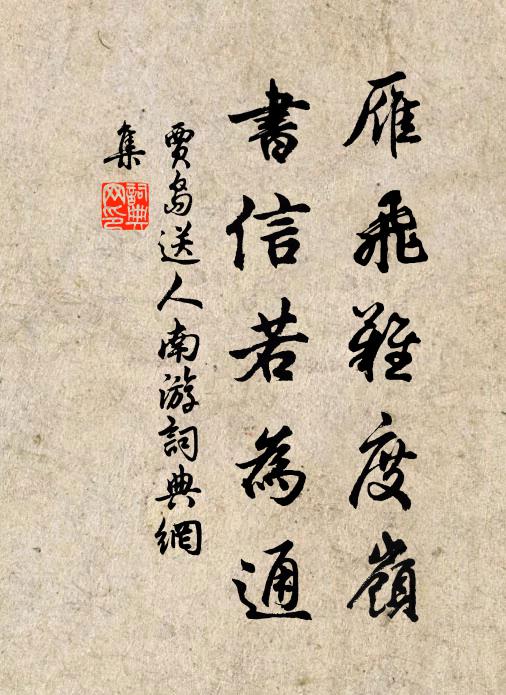 雁飛難度嶺
書信若為通
賈島送人南游詞典網
集
詞典网印